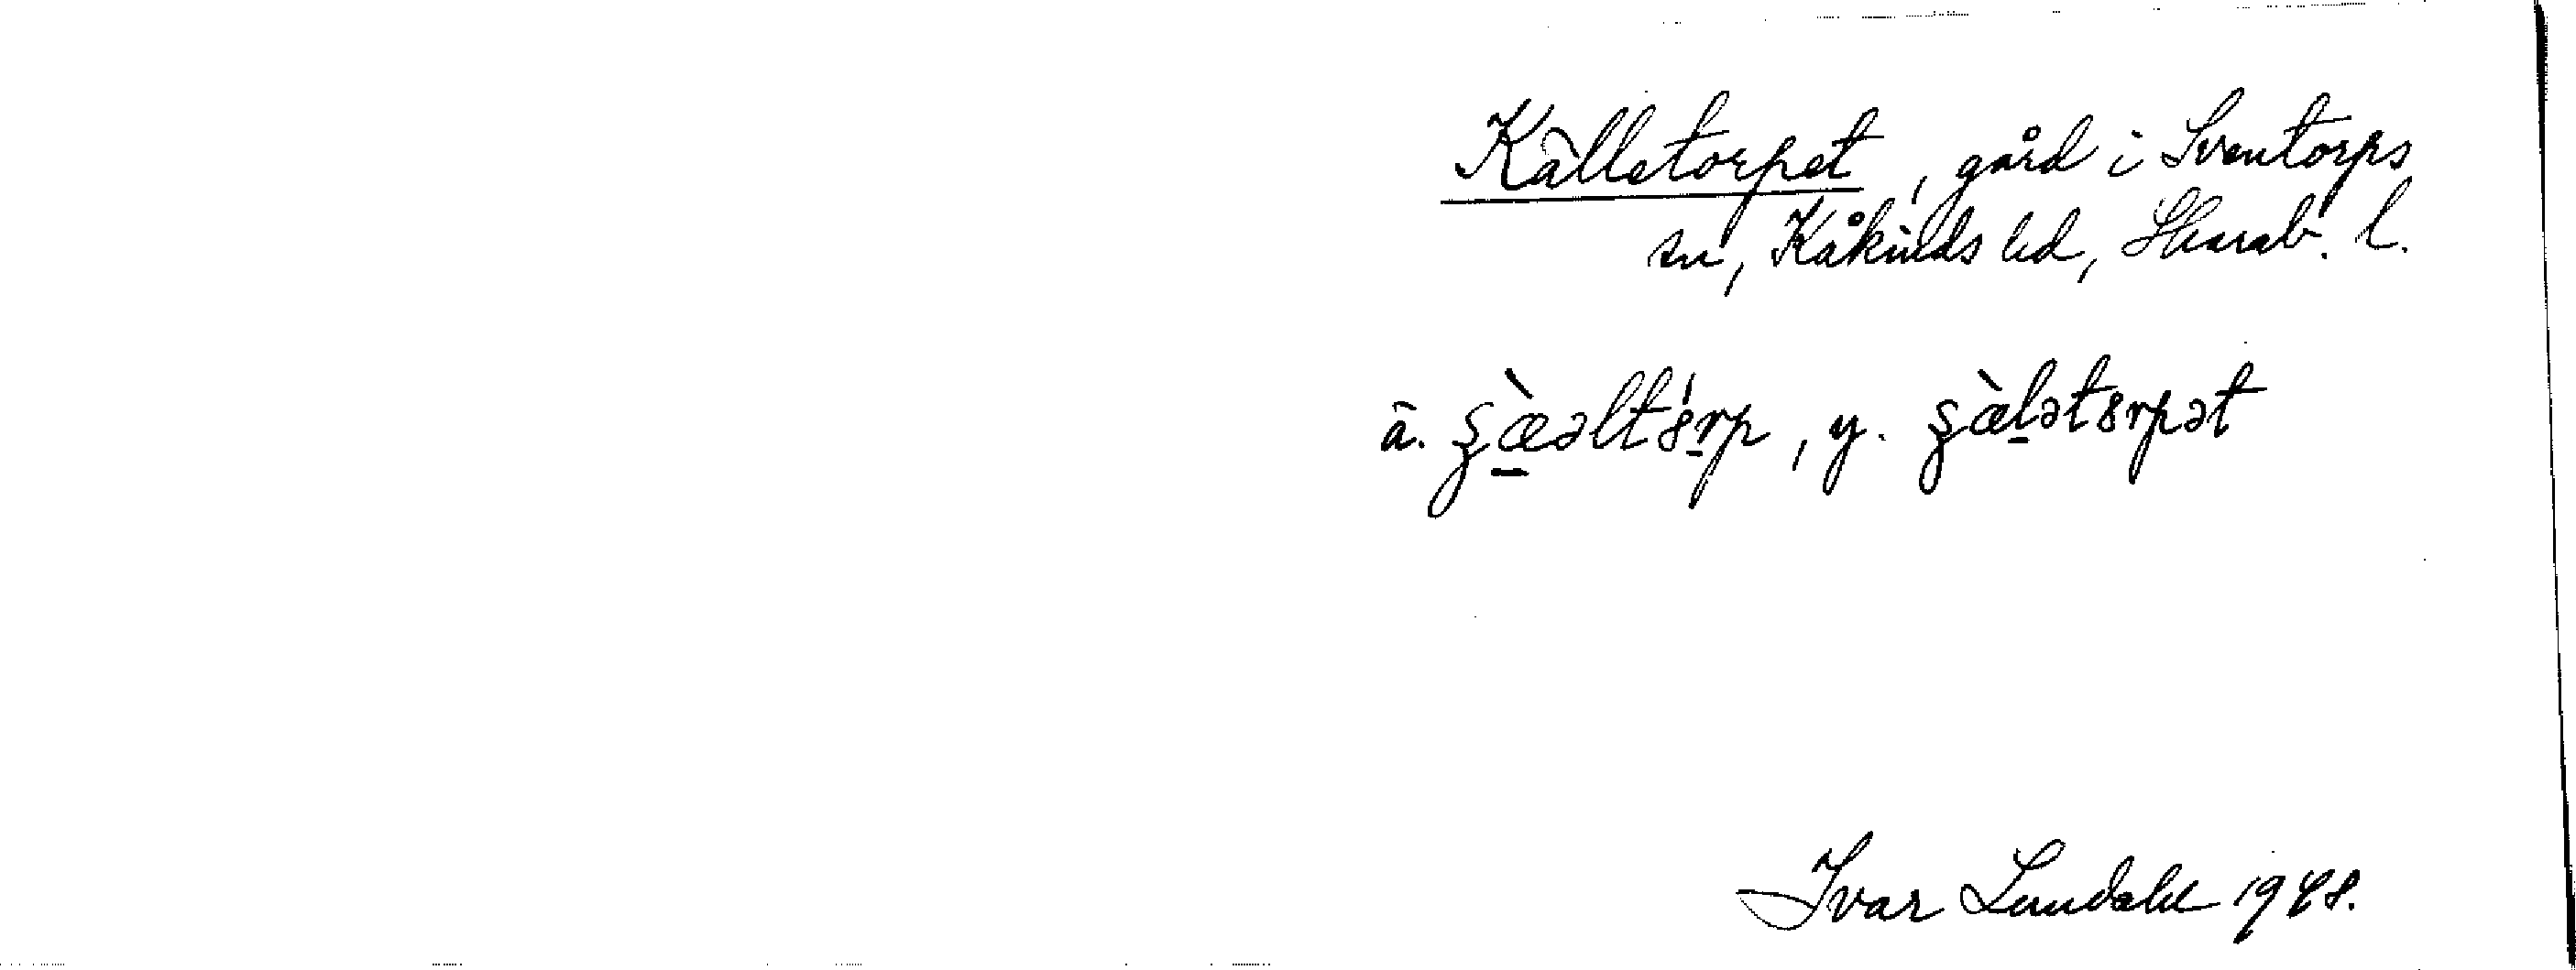 Källetorpet, gård i Sventorps
sn, Kåkinds hd, Skarab. l.
ä. ʂæ̀əlt8́rp, y. ʂæ̀lət8rpət
Ivar Lundahl 1948.